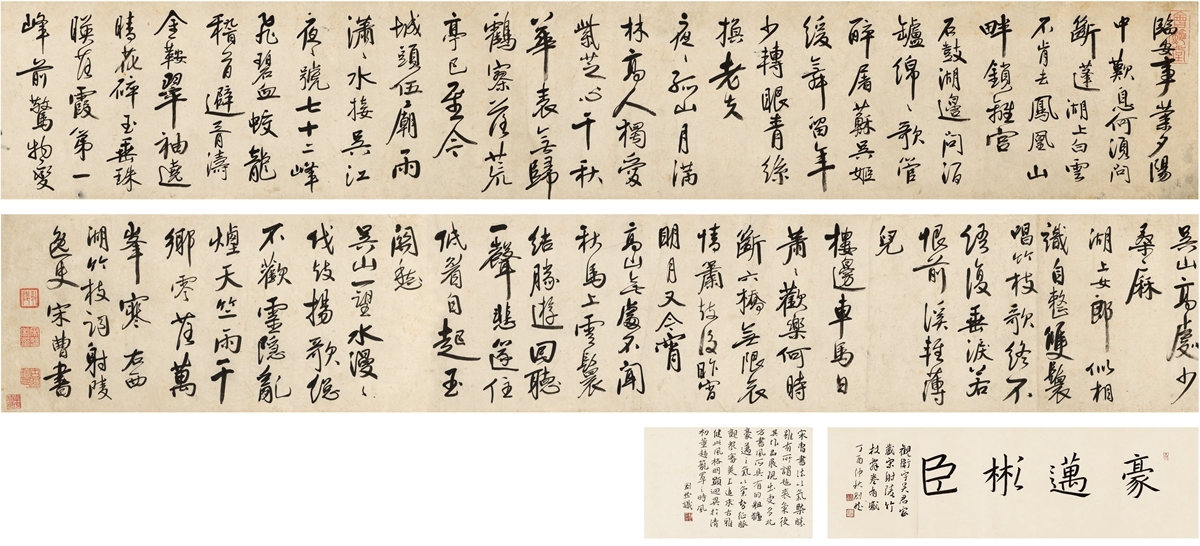 臨安事業夕陽
中歎息何須問
斷蓬湖上白雲
不肯去鳳凰山
畔鎖離宮
石鼓湖邊問酒
罏綿〻歌管
醉屠蘇吳姬
緩舞留年
少轉眼青絲
換老夫
夜〻孤山月滿
林高人獨愛
紫芝心千秋
華表無歸
鶴寒落荒
亭已至今
城頭伍廟雨
瀟〻水接吳江
夜〻號七十二峰
飛碧血蛟龍
稽首避音濤
金鞍翠袖遶
晴花碎玉垂珠
映落霞第一
峰前驚物變
吳山高處少
桑麻
湖上女郎似相
識自整雙鬟
唱竹枝歌終不
終復垂淚若
恨前溪輕薄
兒
樓邊車馬日
蕭〻歡樂何時
斷六橋無限哀
情簫鼓後昨宵
明月又今宵
高山無處不聞
秋馬上雲鬟
結勝遊回聽
一聲悲篴住
低看自起玉
闌愁
吳山一望水漫〻
伐鼓揚歌總
不歡靈隱亂
煙天竺雨千
鄉零落萬
峯寒 右西
湖竹枝詞射陵
逸史宋曹書
豪邁彬臣
觀衛宇吳君家
藏宋射陵竹
枝舞卷有感
丁酉仲秋
宋曹書法以氣槩勝
雖有所謂
其作品展現出更多北
方書風所具有的粗獷
豪邁之氣
觀察審美上追求古雅
健此風格明顯迥異於清
初董趙籠罩之時風